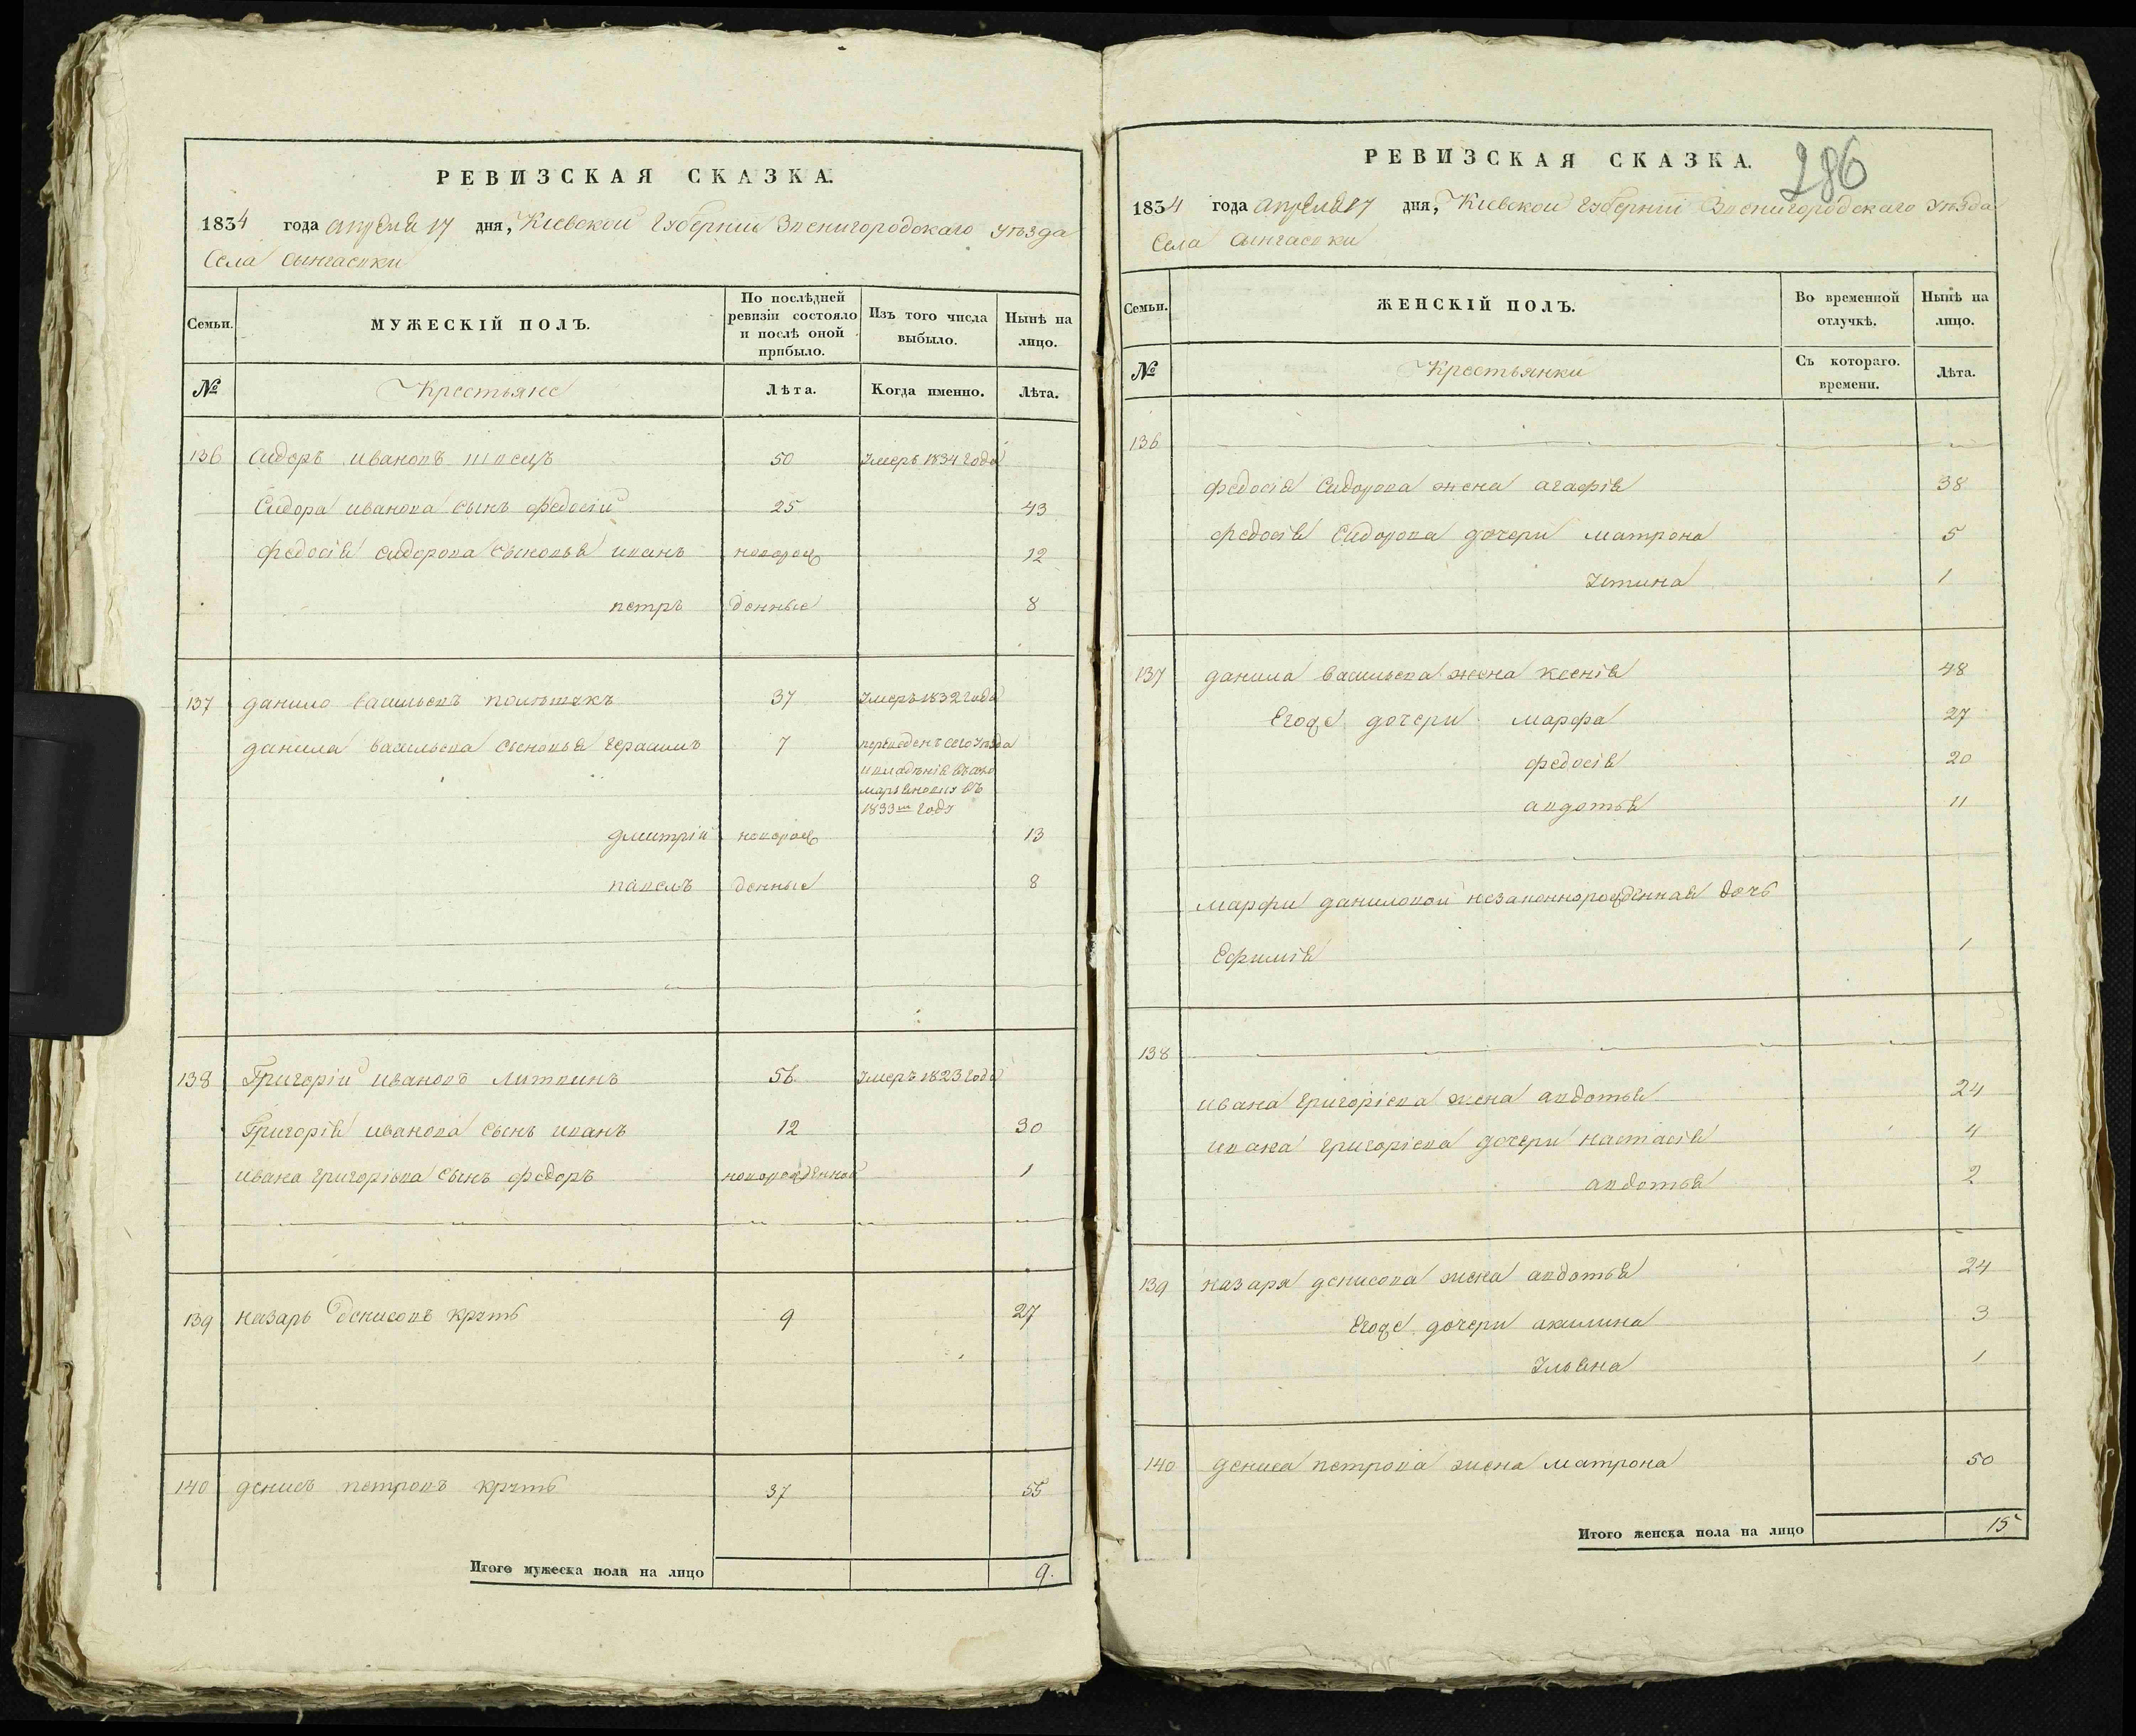 РЕВИЗСКАЯ СКАЗКА.
1834 года апреля 17 дня, Киевской Губернии Звенигородскаго уѣзда
Села
Семьи. МУЖЕСКІЙ ПОЛЪ. По послѣдней ревизіи состояло и послѣ оной прибыло. Изъ того числа выбыло. Нынѣ на лицо.
№ Крестьяне Лѣта. Когда именно. Лѣта.
136 Сидоръ Ивановъ швецъ 50 Умеръ 1834 года
Сидора Иванова сынъ Федосій 25 43
Федосія Сидорова сыновья Иванъ новорож 12
Петръ денные 8
137 Данило Васильевъ 37 Умеръ 1832 года
Данила Васильева сыновья Герасимъ 7 переведенъ сего уѣзда
въ
1833м году
Дмитрій новорож 13
Павелъ денные 8
138 Григорій Ивановъ Литвинъ 56 Умеръ 1823 года
Григорія Иванова сынъ Иванъ 12 30
Ивана Григорьева сынъ Федоръ новорожденной 1
139 Назаръ Денисовъ 9 27
140 Денисъ Петровъ 37 55
Итого мужеска пола на лицо 9.
РЕВИЗСКАЯ СКАЗКА.
286
1834 года апреля 17 дня, Киевской Губерніи Звенигородскаго уѣзда
Села
Семьи. ЖЕНСКІЙ ПОЛЪ. Во временной отлучкѣ. Нынѣ на лицо.
№ Крестьянки Съ котораго. времени. Лѣта.
136
Федосія Сидорова жена Агафія 38
Федосія Сидорова дочери Матрона 5
Устина 1
137 Данила Васильева жена Ксенія 48
Егоже дочери Марфа 27
Федосія 20
Авдотья 11
Марфи Даниловой незаконнорожденная дочь
Ефимія 1
138
Ивана Григоріева жена Авдотья 24
Ивана Григоріева дочери Настасія 4
Авдотья 2
139 Назара Денисова жена Авдотья 24
Егоже дочери Акилина 3
Ульяна 1
140 Дениса Петрова жена Матрона 50
Итого женска пола на лицо 15